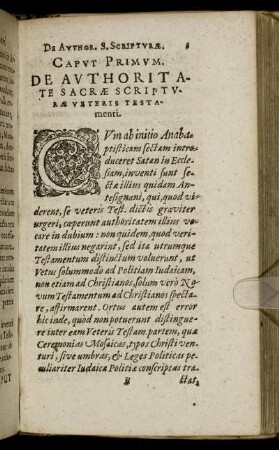 DE AVTHOR. S. SCRIPTVRÆ.
CAPVT PRIMVM.
DE AVTHORITA-
TE SACRÆ SCRIPTV-
RÆ VETERIS TESTA-
menti.
CVm ab initio Anaba-
ptisticam sectam intro-
duceret Satan in Eccle-
siam, inventi sunt se-
ctæ illius quidam An-
tesignani, qui, quod vi-
derent, se veteris Test. dictis graviter
urgeri, cœperunt authoritatem illius vo-
care in dubium: non quidem, quod veri-
tatem illius negarint, sed ita utrumque
Testamentum distinctum voluerunt, ut
Vetus solummodo ad Politiam Iudaicam,
non etiam ad Christianos, solum verò No-
vum Testamentum ad Christianos specta-
re, affirmarent. Ortus autem est error
hic inde, quod non potuerunt distingue-
re inter eam Veteris Testam. partem, quæ
Cæremonias Mosaicas, typos Christi ven-
turi, sive umbras, & Leges Politicas pe-
culiariter Iudaicæ Politiæ conscriptas tra-
B ctat,